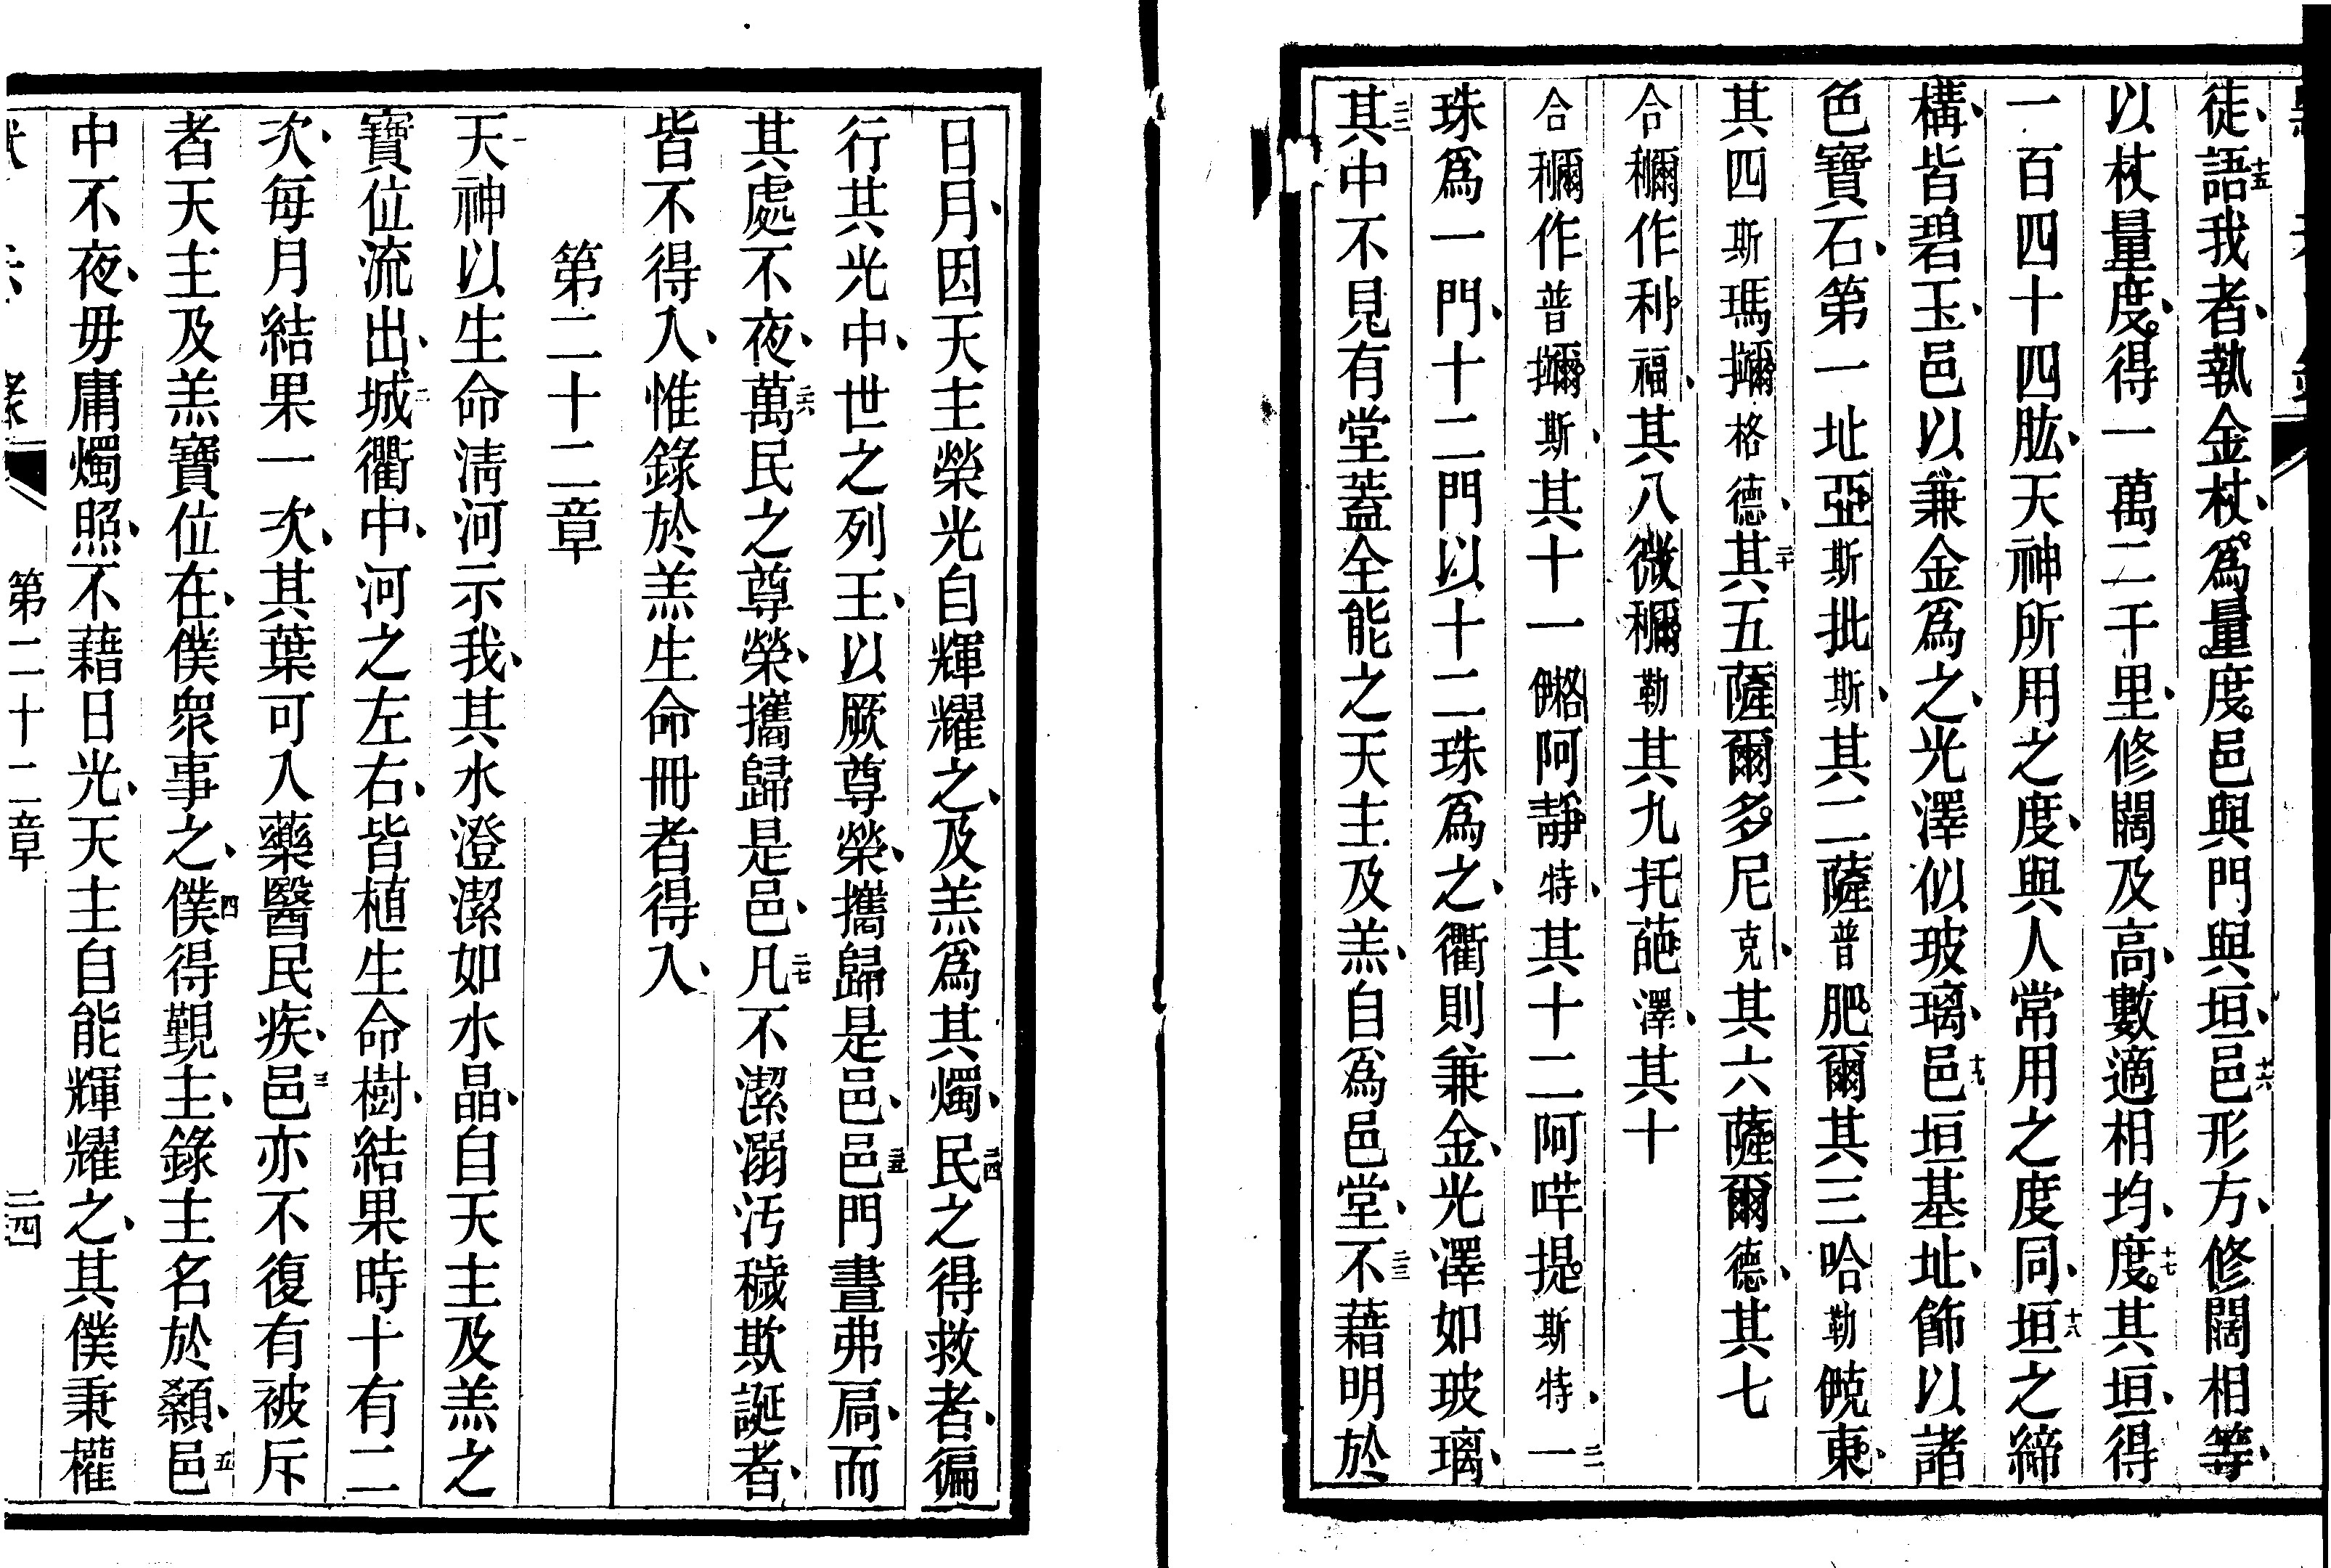 徒、十五語我者、執金杖、爲量度。邑與門與垣、十六邑形方、修闊相等、
以杖量度。得一萬二千里、修闊及高、數適相均、十七度。其垣、得
一百四十四肱、天神所用之度、與人常用之度同、十八垣之締
構、皆碧玉、邑以兼金爲之、光澤似玻璃、十九邑垣基址、飾以諸
色寶石、第一址亞斯批斯、其二薩普肥爾其三哈勒東、
其四斯瑪格德、二十其五薩爾多尼克、其六薩爾德、其七
合穪作利福、其八微穪勒其九托葩澤、其十
合穪作普斯、其十一阿靜特、其十二阿哶提斯特、二一一
珠爲一門、十二門以十二珠爲之、衢則兼金、光澤如玻璃、
二二其中不見有堂蓋全能之天主及羔、自爲邑堂、二三不藉明於
日月、因天主榮光自輝耀之、及羔爲其燭、二四民之得救者、徧
行其光中、世之列王、以厥尊榮、攜歸是邑、二五邑門晝弗扃、而
其處不夜、二六萬民之尊榮、攜歸是邑、二七凡不潔溺汚穢欺誕者、
皆不得入、惟錄於羔生命冊者得入、
第二十二章
一天神以生命淸河示我、其水澄潔如水晶、自天主及羔之
寶位流出、二城衢中、河之左右、皆植生命樹、結果時十有二
次、每月結果一次、其葉可入藥醫民疾、三邑亦不復有被斥
者天主及羔寶位在、僕眾事之、四僕得覲主、錄主名於顙、五邑
中不夜、毋庸燭照、不藉日光、天主自能輝耀之、其僕秉權
第二十二章
二四